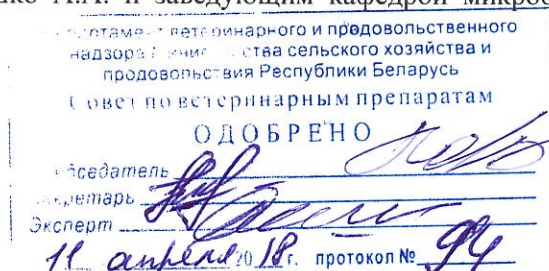 и заведующим кафедрой микроб
ветеринарного и продовольственного
надзора Министерства сельского хозяйства и
продовольствия Республики Беларусь
Совет по ветеринарным препаратам
ОДОБРЕНО
Председатель
Секретарь
Эксперт
11 апреля 2018г. протокол № 94